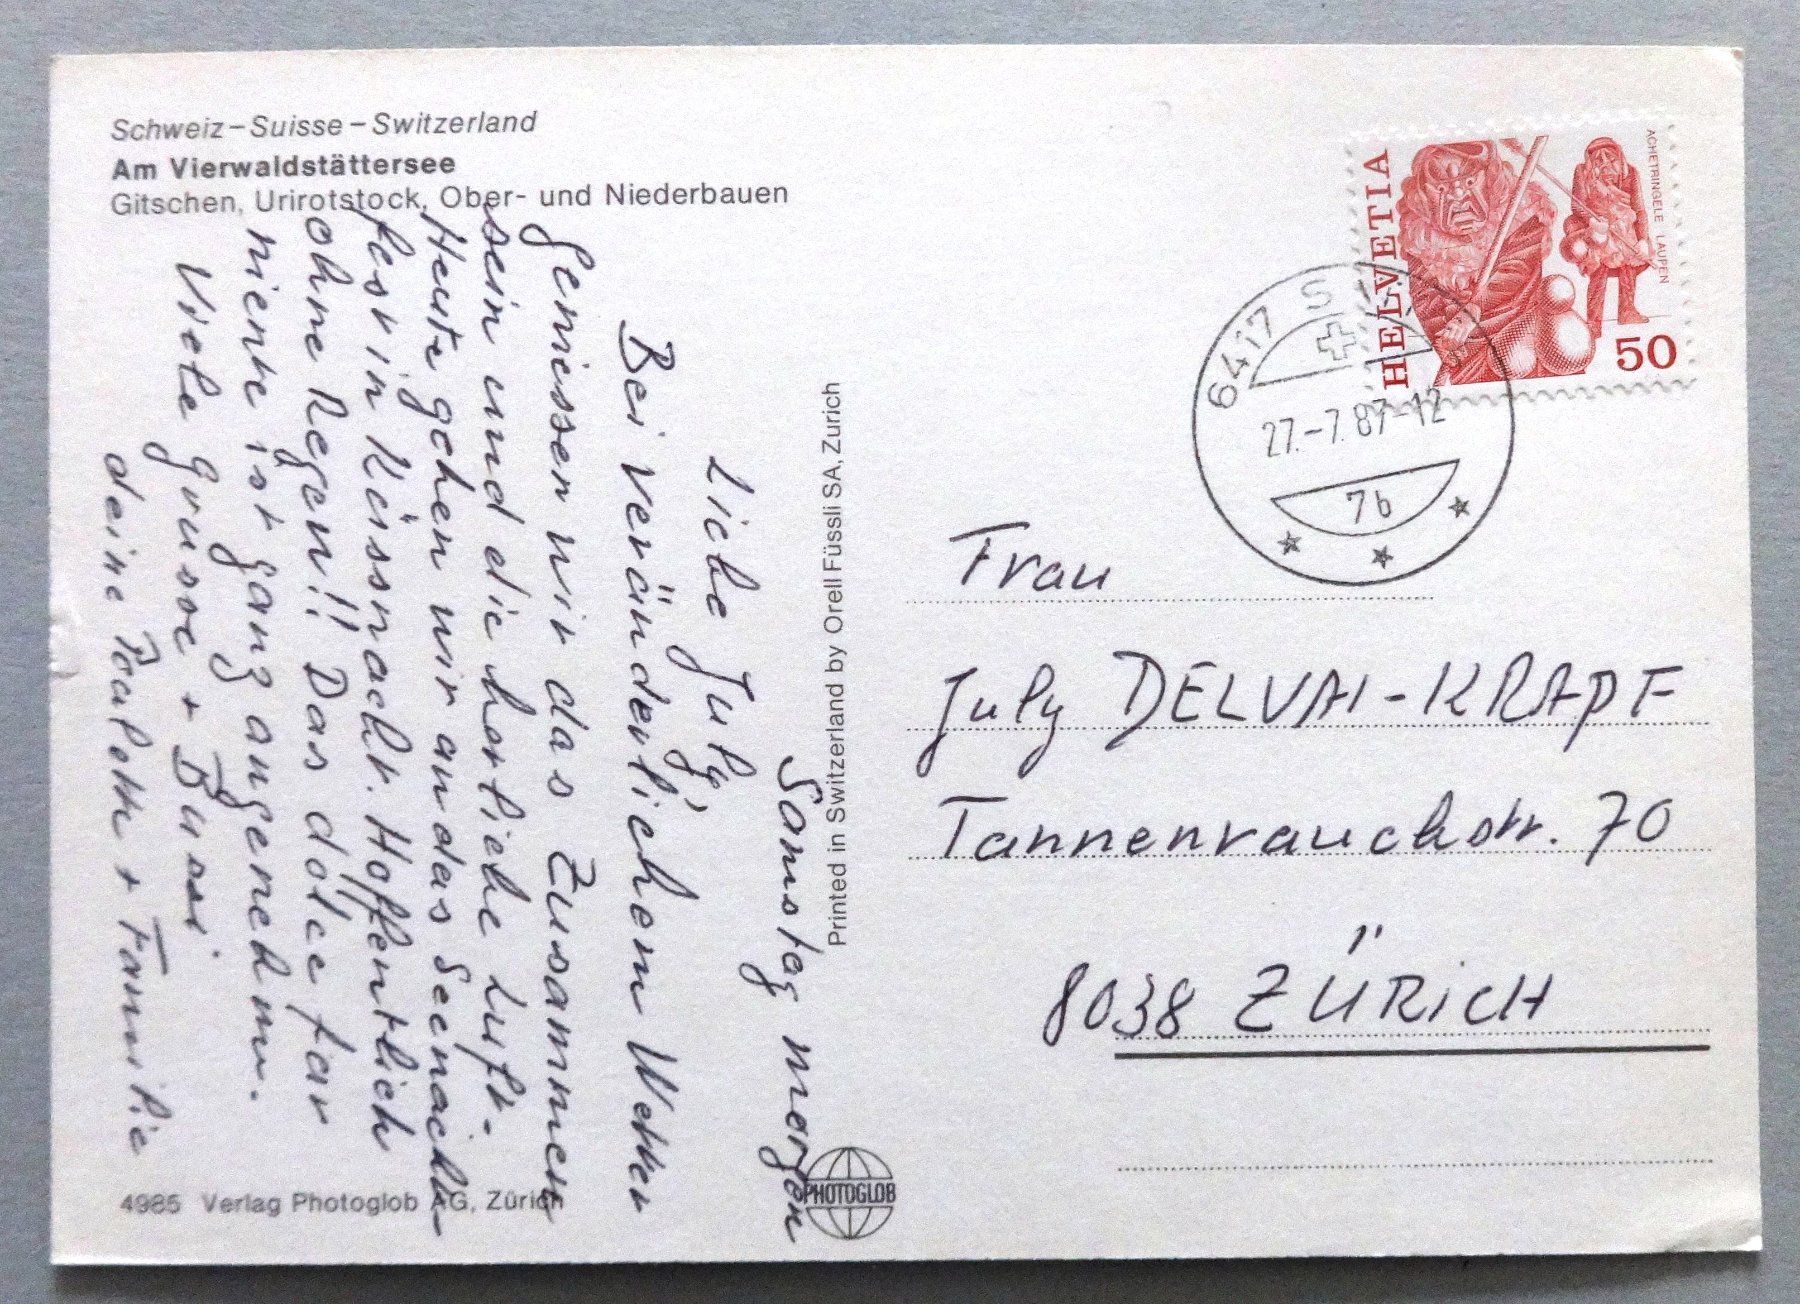 Schweiz – Suisse – Switzerland
Am Vierwaldstättersee
Gitschen, Urirotstock, Ober- und Niederbauen
Samstag morgen
Liebe July,
Bei veränderlichem Wetter
geniessen wir das Zusammen-
sein und die herliche Luft.
Heute gehen wir an das Seenacht-
fest in Küssnacht. Hoffentlich
ohne Regen!! Das dolce far
niente ist ganz angenehm.
Viele grüsse + Bussi
deine + Familie
4985 Verlag Photoglob AG, Zürich
Printed in Switzerland by Orell Füssli SA, Zurich
PHOTOGLOB
HELVETIA
ACHETRINGELE LAUPEN
50
6417
27.-7.87-12
7b
Frau
July DELVAI-KRAPF
Tannenrauchstr. 70
8038 ZÜRICH